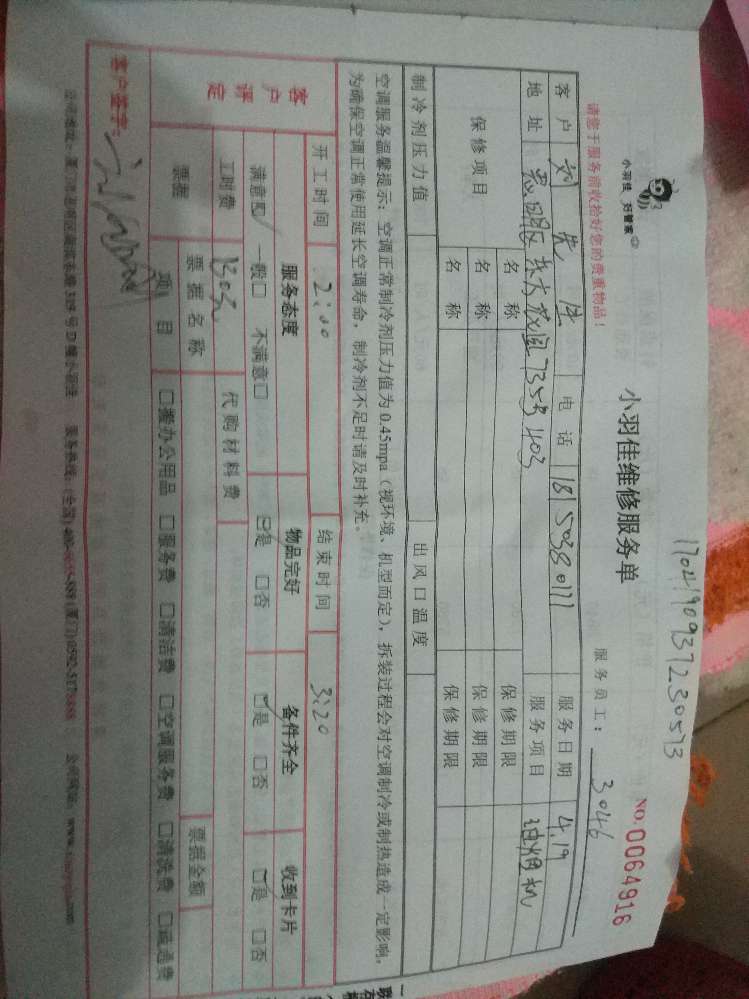 1704190937230573
小羽佳 好管家
小羽佳维修服务单
NO. 0064916
请您于服务前收拾好您的贵重物品！
服务员工：3046
客户 先生 电话 18150380111 服务日期 4.19
地址 思明区东方花园 403 服务项目 油烟机
保修项目 名称 保修期限
名称 保修期限
名称 保修期限
制冷剂压力值 出风口温度
空调服务温馨提示：空调正常制冷剂压力值为0.45mpa（视环境、机型而定），拆装过程会对空调制冷或制热造成一定影响，
为确保空调正常使用延长空调寿命，制冷剂不足时请及时补充。
开工时间 2:00 结束时间 3:20
客户评定 服务态度 物品完好 备件齐全 收到卡片
满意☑ 一般□ 不满意□ ☑是 □否 ☑是 □否 ☑是 □否
工时费 130元 代购材料费
票据 票据名称 票据金额
项目 □搬办公用品 □服务费 □清洁费 □空调服务费 □清洗费 □疏通费
客户签字：